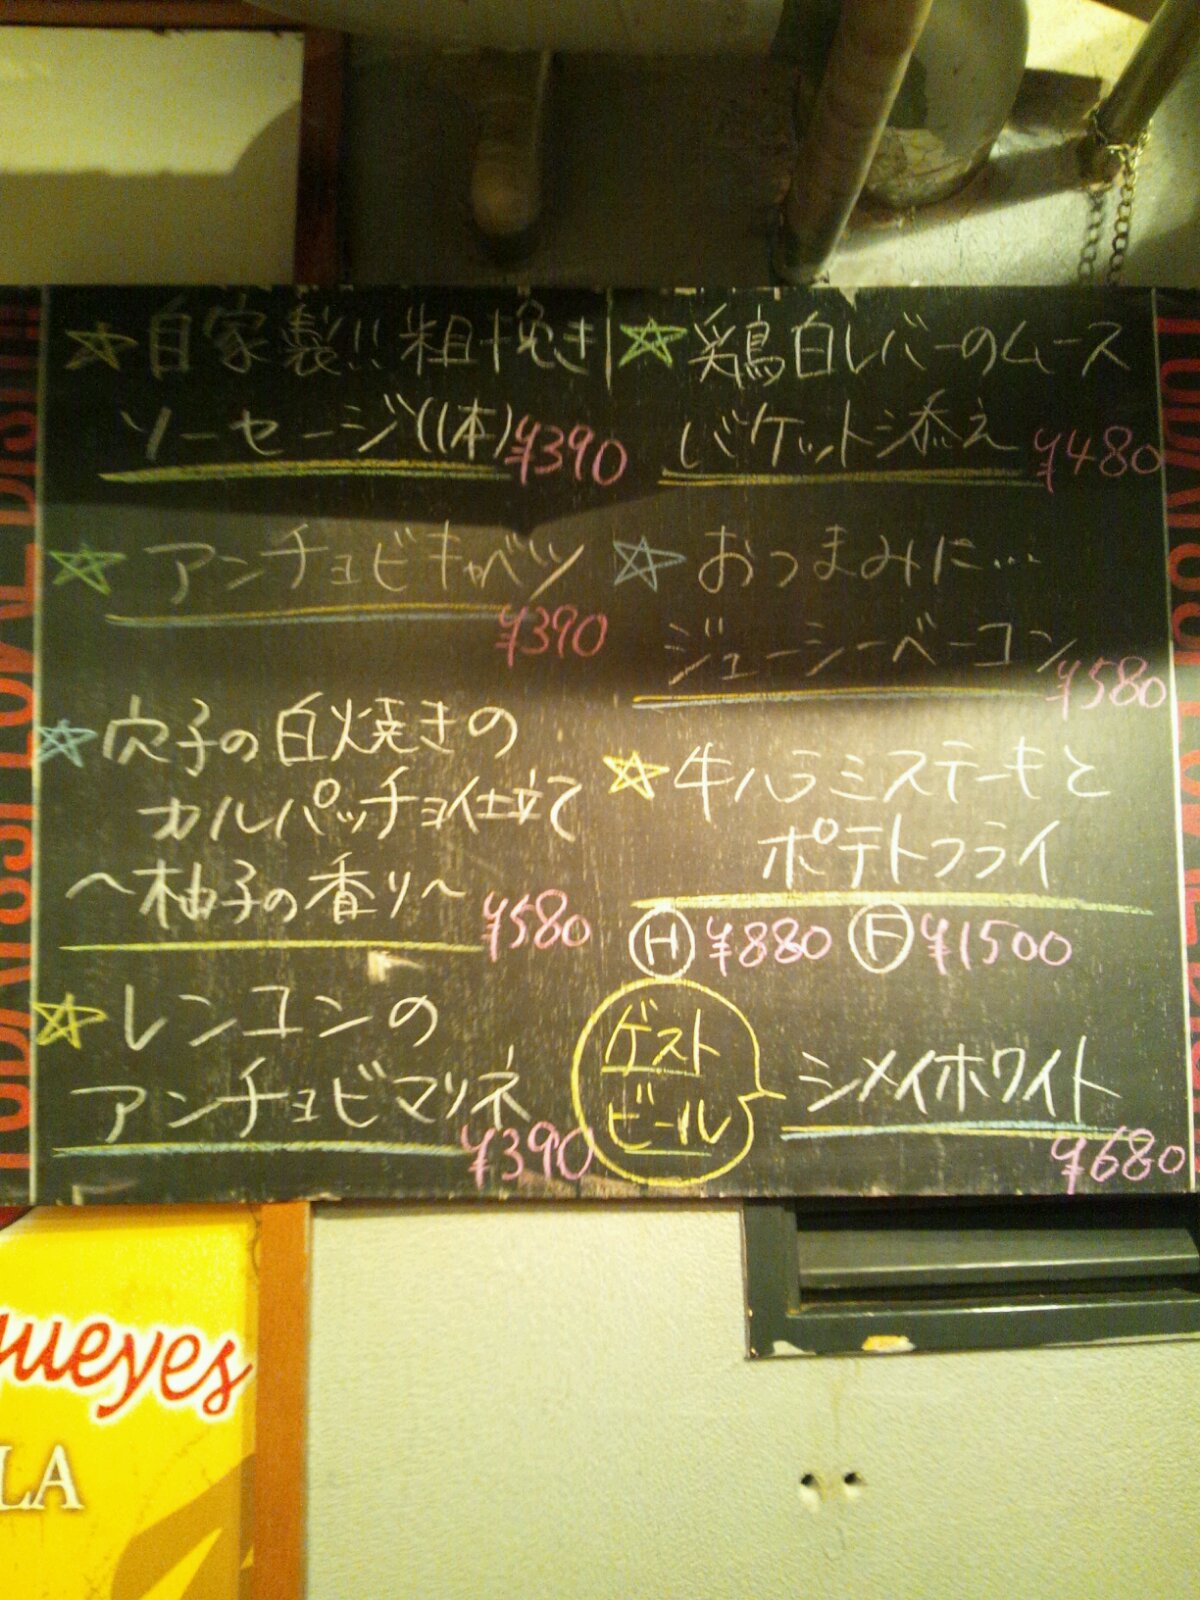 自家製!!粗挽き
ソーセージ(1本)¥390
アンチョビキャベツ
¥390
穴子の白焼きの
カルパッチョ仕立て
～柚子の香り～ ¥580
レンコンの
アンチョビマリネ
¥390
鶏白レバーのムース
バケット添え ¥480
おつまみに…
ジューシーベーコン
¥580
牛ハラミステーキと
ポテトフライ
H ¥880 F ¥1500
ゲスト
ビール
シメイホワイト
¥680
ueyes
LA